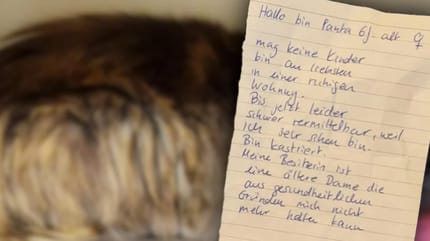 Hallo bin Panta 6J. alt ♀
mag keine Kinder
bin am liebsten
in einer ruhigen
Wohnung.
Bis jetzt leider
schwer vermittelbar, weil
ich sehr scheu bin.
Bin kastriert.
Meine Besitzerin ist
eine ältere Dame die
aus gesundheitlichen
Gründen mich nicht
mehr halten kann